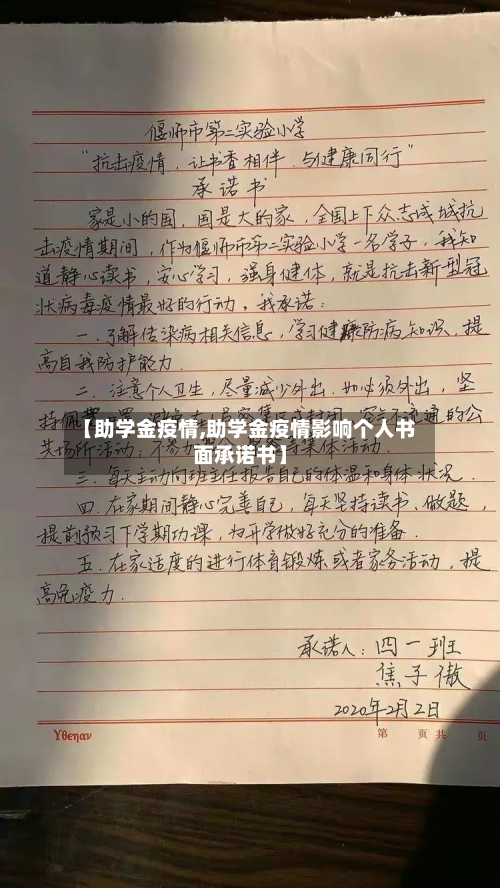 偃师市第二实验小学
“抗击疫情，让书香相伴，与健康同行”
承诺书
家是小的国，国是大的家，全国上下众志成城抗
击疫情期间，作为偃师市第二实验小学一名学子，我知
道静心读书，安心学习，强身健体，就是抗击新型冠
状病毒疫情最好的行动，我承诺：
一．了解传染病相关信息，学习健康防病知识，提
高自我防护能力．
二．注意个人卫生，尽量减少外出．如必须外出，坚
持佩 通的公
【助学金疫情,助学金疫情影响个人书
面承诺书】
共场所活动；不参加 集体活动．
三．每天主动向班主任报告自己的体温和身体状况．
四．在家期间静心完善自己，每天坚持读书、做题，
提前预习下学期功课，为开学做好充分的准备．
五．在家适度的进行体育锻炼或者家务活动，提
高免疫力．
承诺人：四一班
焦子傲
2020年2月2日
Yθєηαν
第 页 共 页